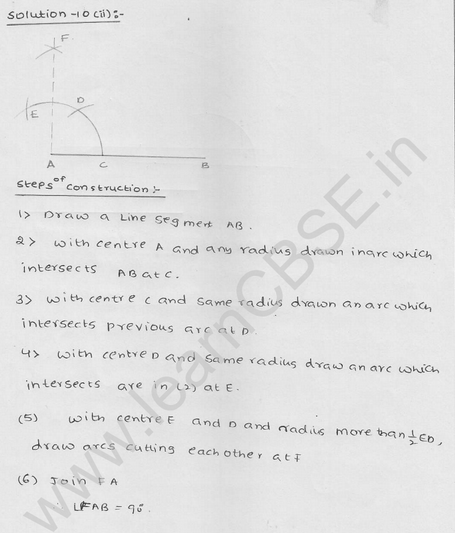 Solution -10(ii):-
F
E
D
A
C
B
Steps of construction:-
1> Draw a Line segment AB.
2> with centre A and any radius drawn inarc which
intersects AB at C.
3> with centre C and same radius drawn an arc which
intersects previous arc at D.
4> with centre D and same radius draw an arc which
intersects are in (2) at E.
(5) with centre E and D and radius more than 1/2 ED,
draw arcs cutting each other at F
(6) Join FA
∠FAB = 90°.
www.learnCBSE.in